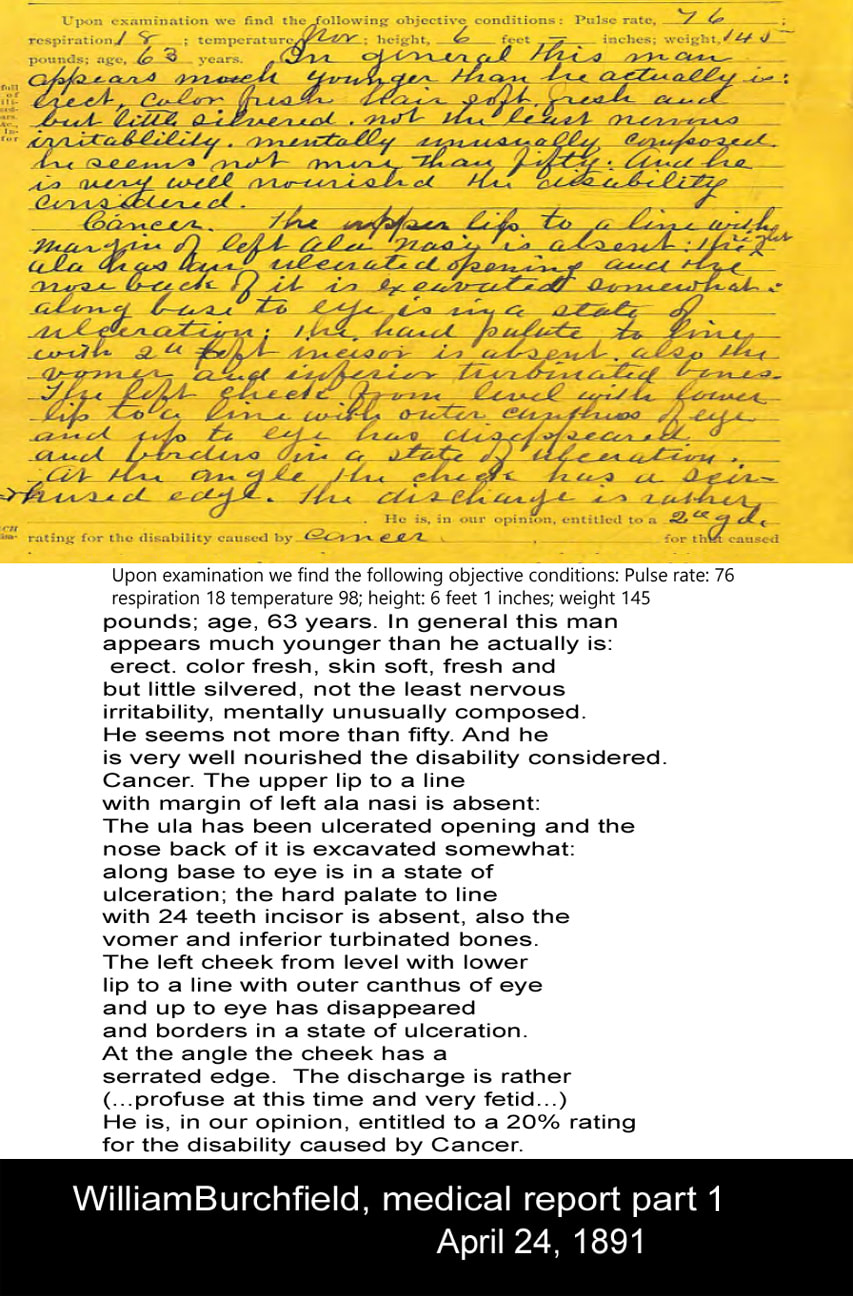 Upon examination we find the following objective conditions: Pulse rate, 76 ;
respiration 18 ; temperature Nor ; height, 6 feet — inches; weight, 145
pounds; age, 63 years. In general this man
appears much younger than he actually is:
erect, color fresh hair soft, fresh and
but little silvered. not the least nervous
irritablility. mentally unusually composed.
he seems not more than fifty. And he
is very well nourishd the disability
considered.
Cancer. The upper lip to a line with
margin of left ala nasi is absent: the right
ala has an ulcerated opening and the
nose back of it is excavated somewhat:
along base to eye is in a state of
ulceration; the hard palate to line
with 2d left incisor is absent. also the
vomer and inferior turbinated bones.
The left cheek from level with lower
lip to a line with outer canthus of eye
and up to eye has disappeared
and borders in a state of ulceration.
At the angle the cheek has a scir-
rhused edge. The discharge is rather
He is, in our opinion, entitled to a 2d gd.
rating for the disability caused by cancer , for that caused
Upon examination we find the following objective conditions: Pulse rate: 76
respiration 18 temperature 98; height: 6 feet 1 inches; weight 145
pounds; age, 63 years. In general this man
appears much younger than he actually is:
erect. color fresh, skin soft, fresh and
but little silvered, not the least nervous
irritability, mentally unusually composed.
He seems not more than fifty. And he
is very well nourished the disability considered.
Cancer. The upper lip to a line
with margin of left ala nasi is absent:
The ula has been ulcerated opening and the
nose back of it is excavated somewhat:
along base to eye is in a state of
ulceration; the hard palate to line
with 24 teeth incisor is absent, also the
vomer and inferior turbinated bones.
The left cheek from level with lower
lip to a line with outer canthus of eye
and up to eye has disappeared
and borders in a state of ulceration.
At the angle the cheek has a
serrated edge. The discharge is rather
(...profuse at this time and very fetid...)
He is, in our opinion, entitled to a 20% rating
for the disability caused by Cancer.
WilliamBurchfield, medical report part 1
April 24, 1891